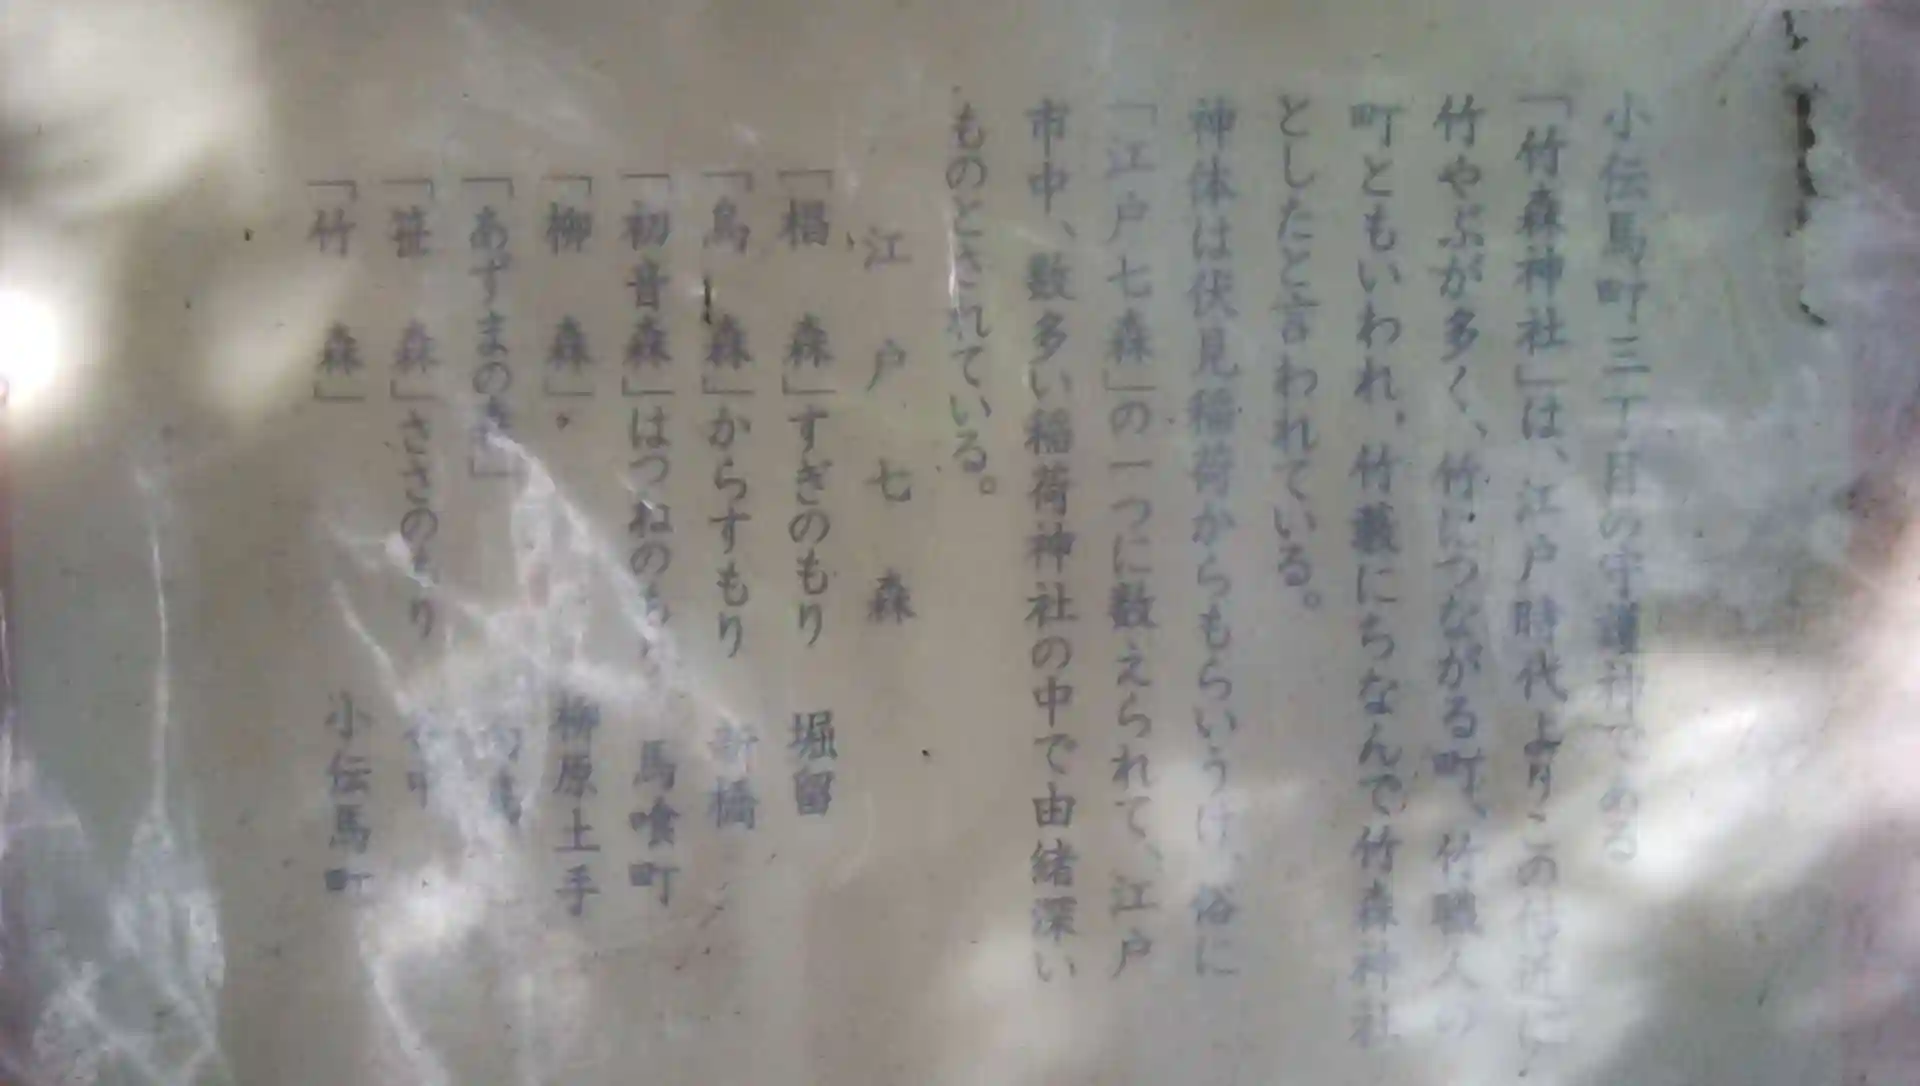 小伝馬町三丁目の守護神である
「竹森神社」は、江戸時代よりこの付近に
竹やぶが多く、竹につながる町、竹職人の
町ともいわれ、竹藪にちなんで竹森神社
としたと言われている。
神体は伏見稲荷からもらいうけ、俗に
「江戸七森」の一つに数えられて、江戸
市中、数多い稲荷神社の中で由緒深い
ものとされている。
江戸七森
「椙森」すぎのもり 堀留
「烏森」からすもり 新橋
「初音森」はつねのもり 馬喰町
「柳森」 柳原土手
「あずまの森」
「笹森」ささのもり
「竹森」 小伝馬町